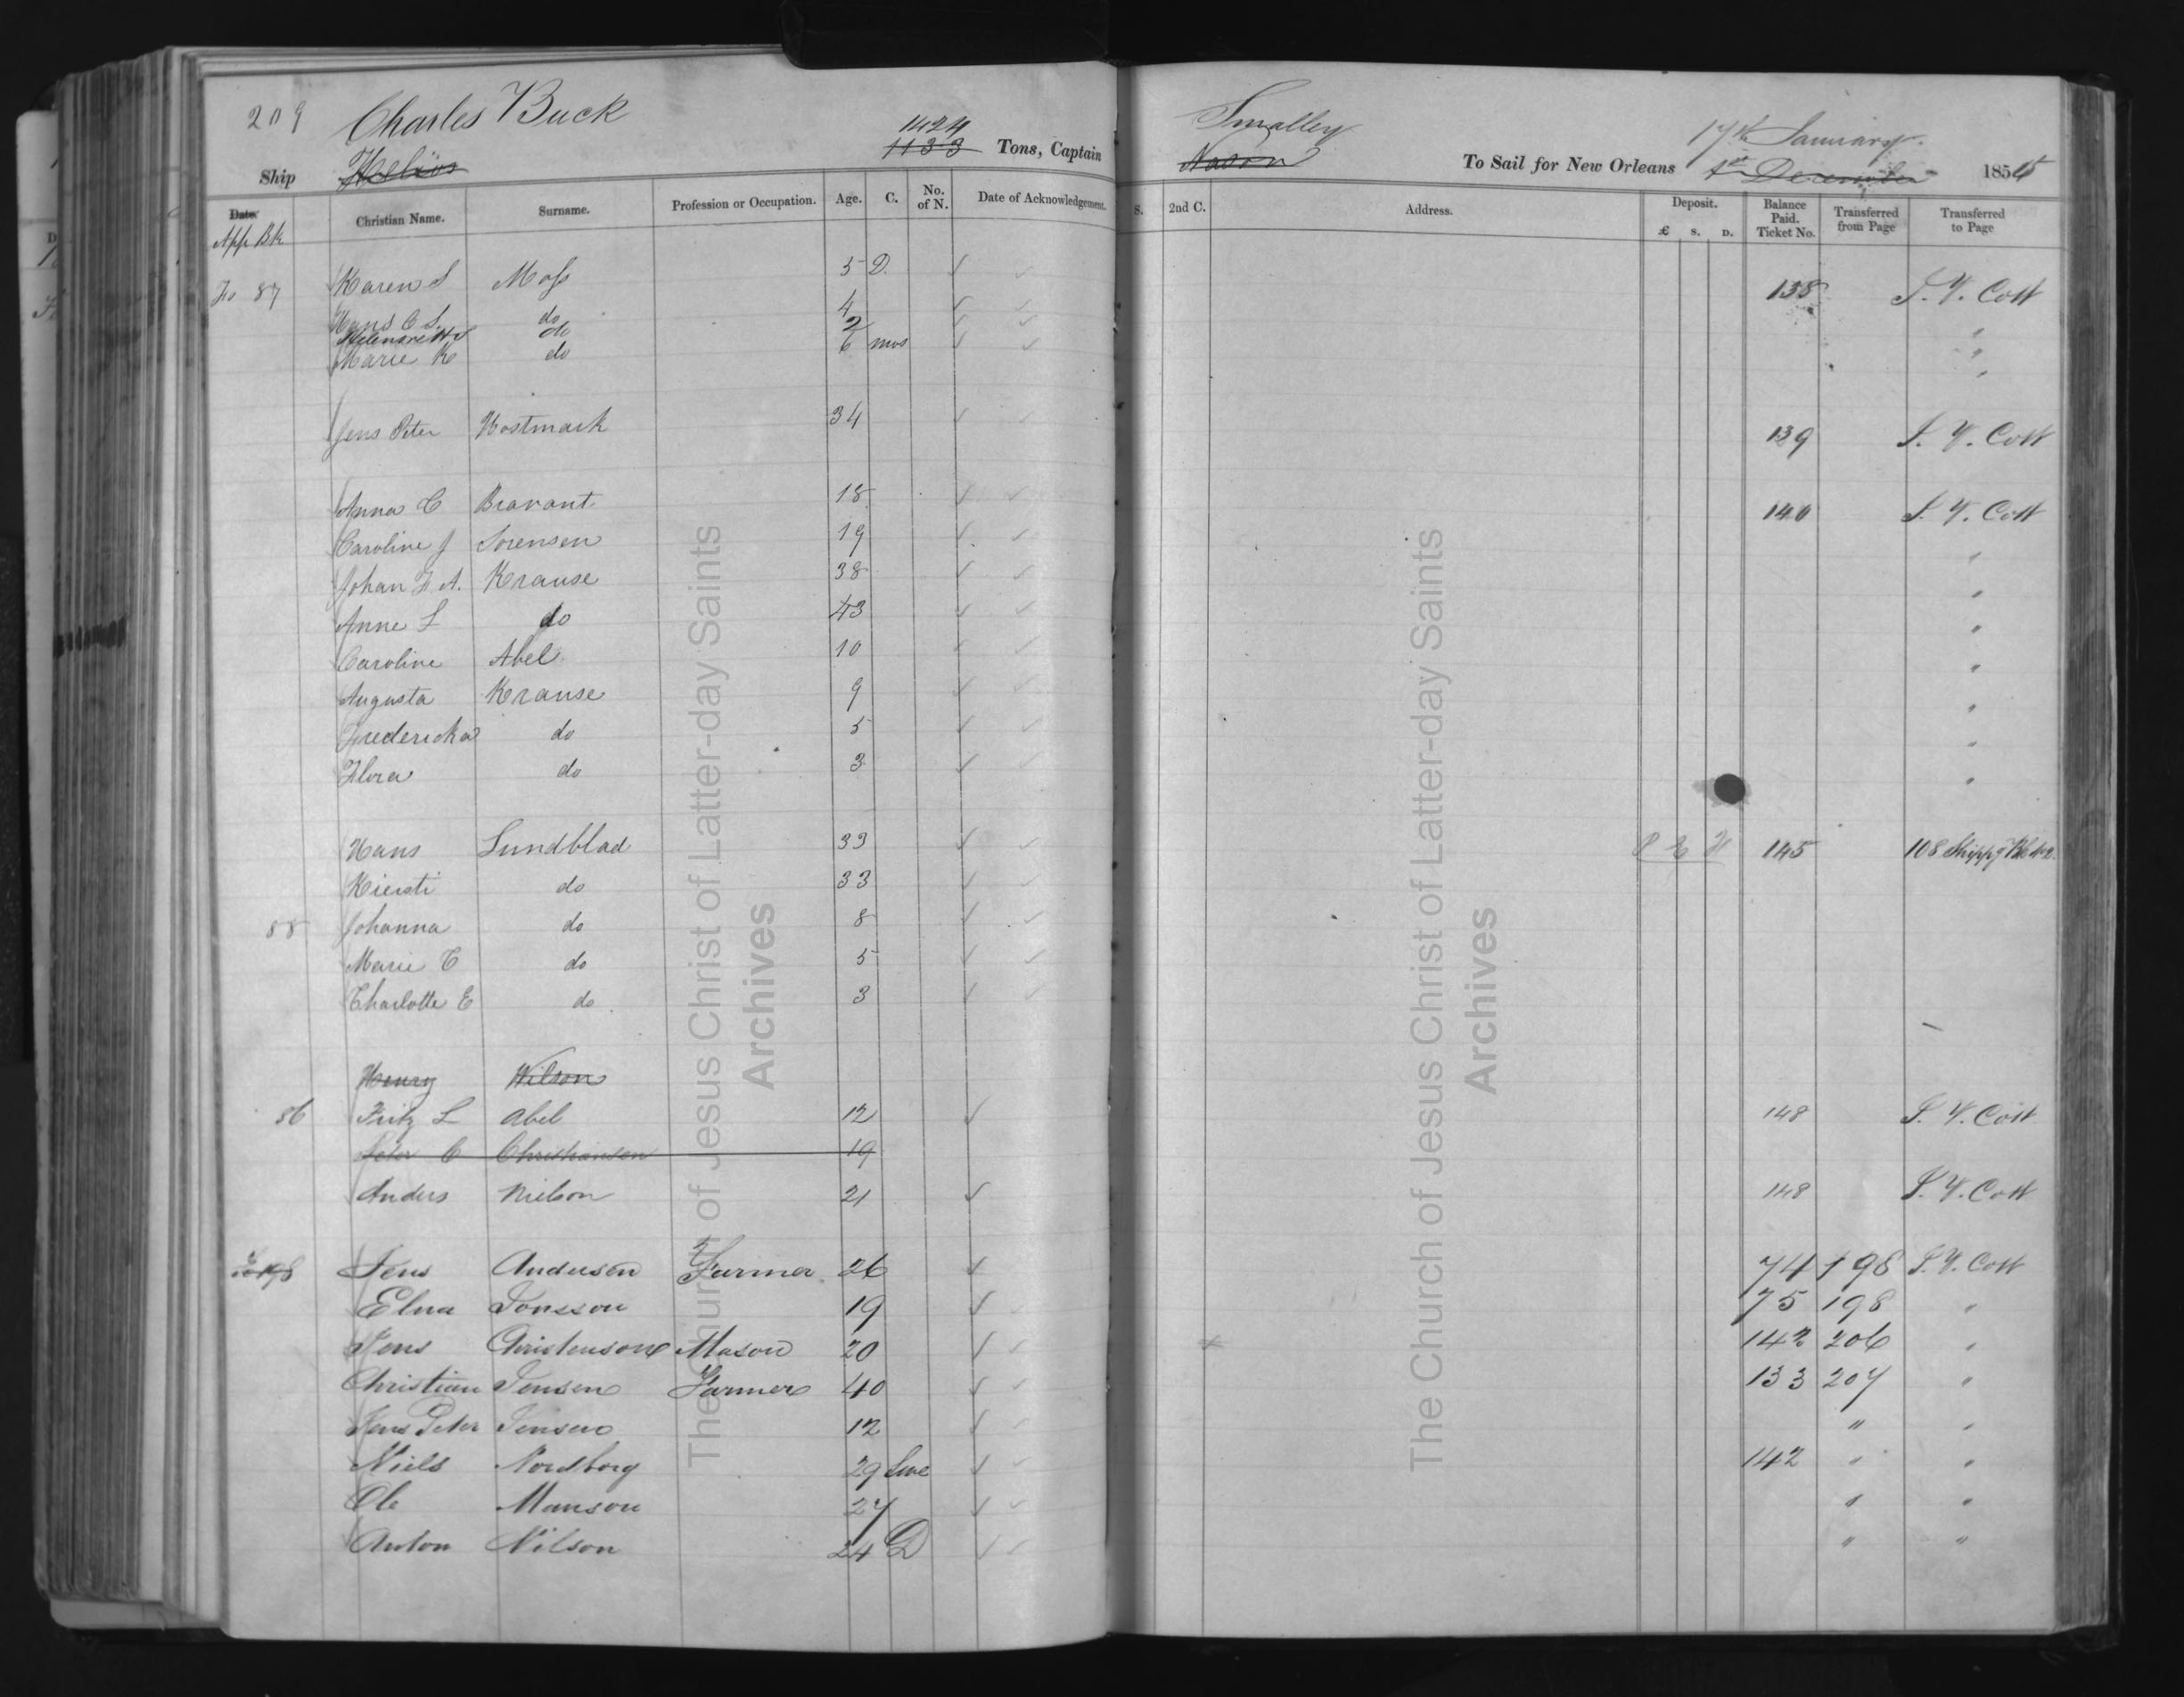 209 Charles Buck 1424 Smalley 17th January
Ship Helios 1133 Tons, Captain Nason To Sail for New Orleans 1st December 1855
Date Christian Name. Surname. Profession or Occupation. Age. C. No. of N. Date of Acknowledgement. S. 2nd C. Address. Deposit. £ S. D. Balance Paid. Ticket No. Transferred from Page Transferred to Page
App Bk
Fo 87 Karen S Moss 5 D. ✓ ✓ 138 P. E. Cott
Hans C S. do 4 ✓ ✓ "
do 2 ✓ ✓ "
Marie K do 6 mos ✓ ✓ "
Jens Peter Hostmark 34 ✓ ✓ 139 Cott
Anna C Bravant 18 ✓ ✓ 140 Cott
Caroline J Sorensen 19 ✓ ✓ "
Johan F A. Krause 38 ✓ ✓ "
Anne L do 43 ✓ ✓ "
Caroline Abel 10 ✓ ✓ "
Augusta Krause 9 ✓ ✓ "
Fredericka do 5 ✓ ✓ "
Flora do 3 ✓ ✓ "
Hans Lundblad 33 ✓ ✓ P E U 145 108 Shippg Bk No 2.
Kiersti do 33 ✓ ✓
88 Johanna do 8 ✓ ✓
Marie C do 5 ✓ ✓
Charlotte E do 3 ✓ ✓
Henry Wilson
86 Fritz L Abel 12 ✓ 148 Cott
Peter C Christiansen 19
Anders Nielson 21 ✓ 148 Cott
Jens Andersen Farmer 26 ✓ 74 198 Cott
Elna Jonsson 19 ✓ 75 198 "
Jens Christensone Mason 20 ✓ ✓ 142 206 "
Christian Jensen Farmer 40 ✓ ✓ 133 207 "
Jens Peter Jensen 12 ✓ ✓ " "
Niels Nordborg 29 Swe ✓ ✓ 142 " "
Ole Manson 27 ✓ ✓ " "
Anton Nilson 24 D ✓ ✓ " "
The Church of Jesus Christ of Latter-day Saints
Archives
The Church of Jesus Christ of Latter-day Saints
Archives